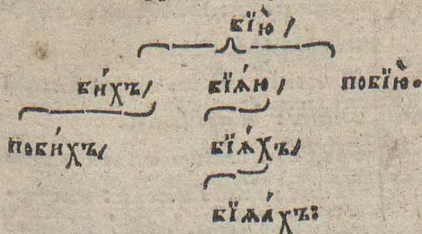 бїю̀,
би́хъ, бїѧ́ю, побїю̀.
поби́хъ, бїѧ́хъ,
бїѧа́хъ: